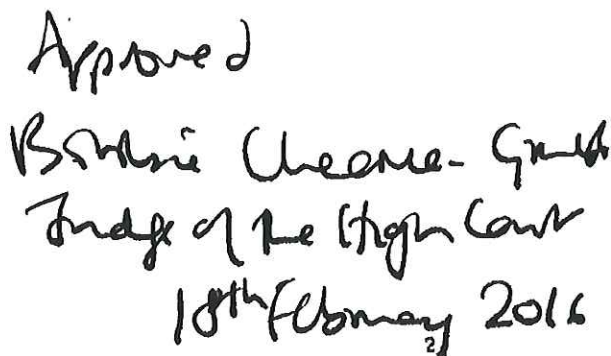 Approved
Bobbie Cheema-Grubb
Judge of the High Court
18th February 2016
2